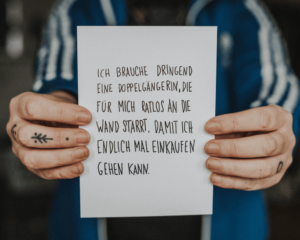 ICH BRAUCHE DRINGEND
EINE DOPPELGÄNGERIN, DIE
FÜR MICH RATLOS AN DIE
WAND STARRT, DAMIT ICH
ENDLICH MAL EINKAUFEN
GEHEN KANN.